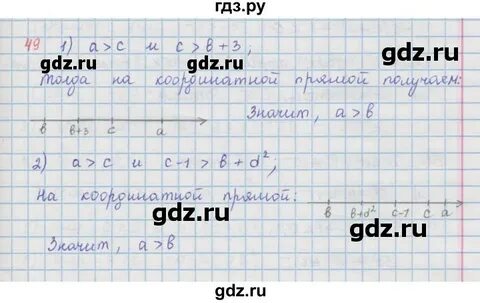 гдз.ру
49 1) a > c и c > b + 3 ,
тогда на координатной прямой получаем:
b b+3 c a
Значит, a > b
gdz.ru gdz.ru
2) a > c и c-1 > b + d²;
На координатной прямой:
b b+d² c-1 c a
gdz.ru gdz.ru
Значит, a > b
gdz.ru